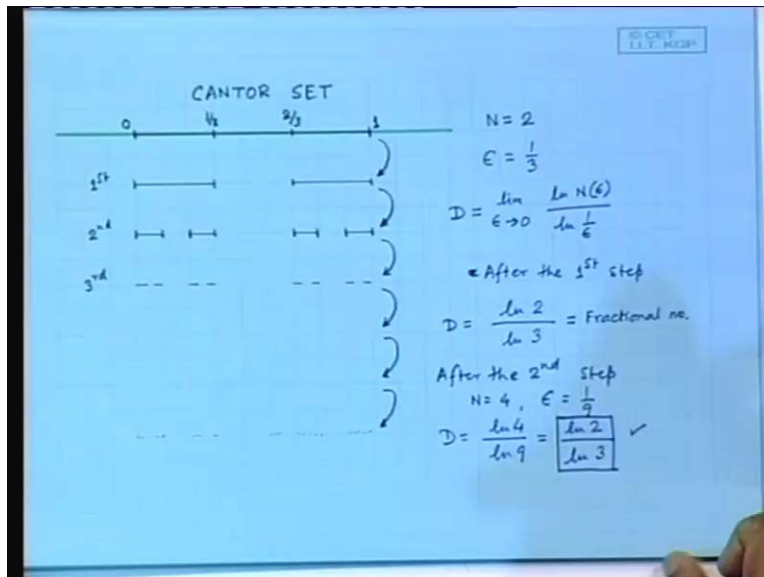 © CET
I.I.T. KGP
CANTOR SET
0 1/3 2/3 1
1st
2nd
3rd
N = 2
ϵ = 1/3
D = lim ϵ→0 ln N(ϵ) / ln 1/ϵ
After the 1st step
D = ln 2 / ln 3 = Fractional no.
After the 2nd step
N = 4, ϵ = 1/9
D = ln 4 / ln 9 = ln 2 / ln 3 ✓